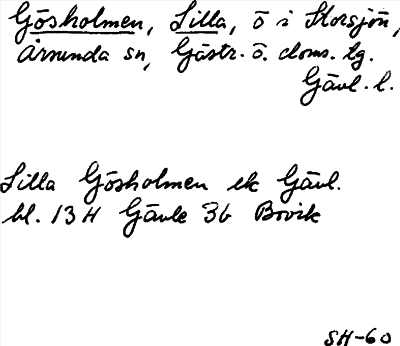 Gösholmen, Lilla, ö i Storsjön,
Årsunda sn, Gästr. ö. doms. tg.
Gävl. l.
Lilla Gösholmen ek Gävl.
bl. 13 H Gävle 3b Bovik
SH-60